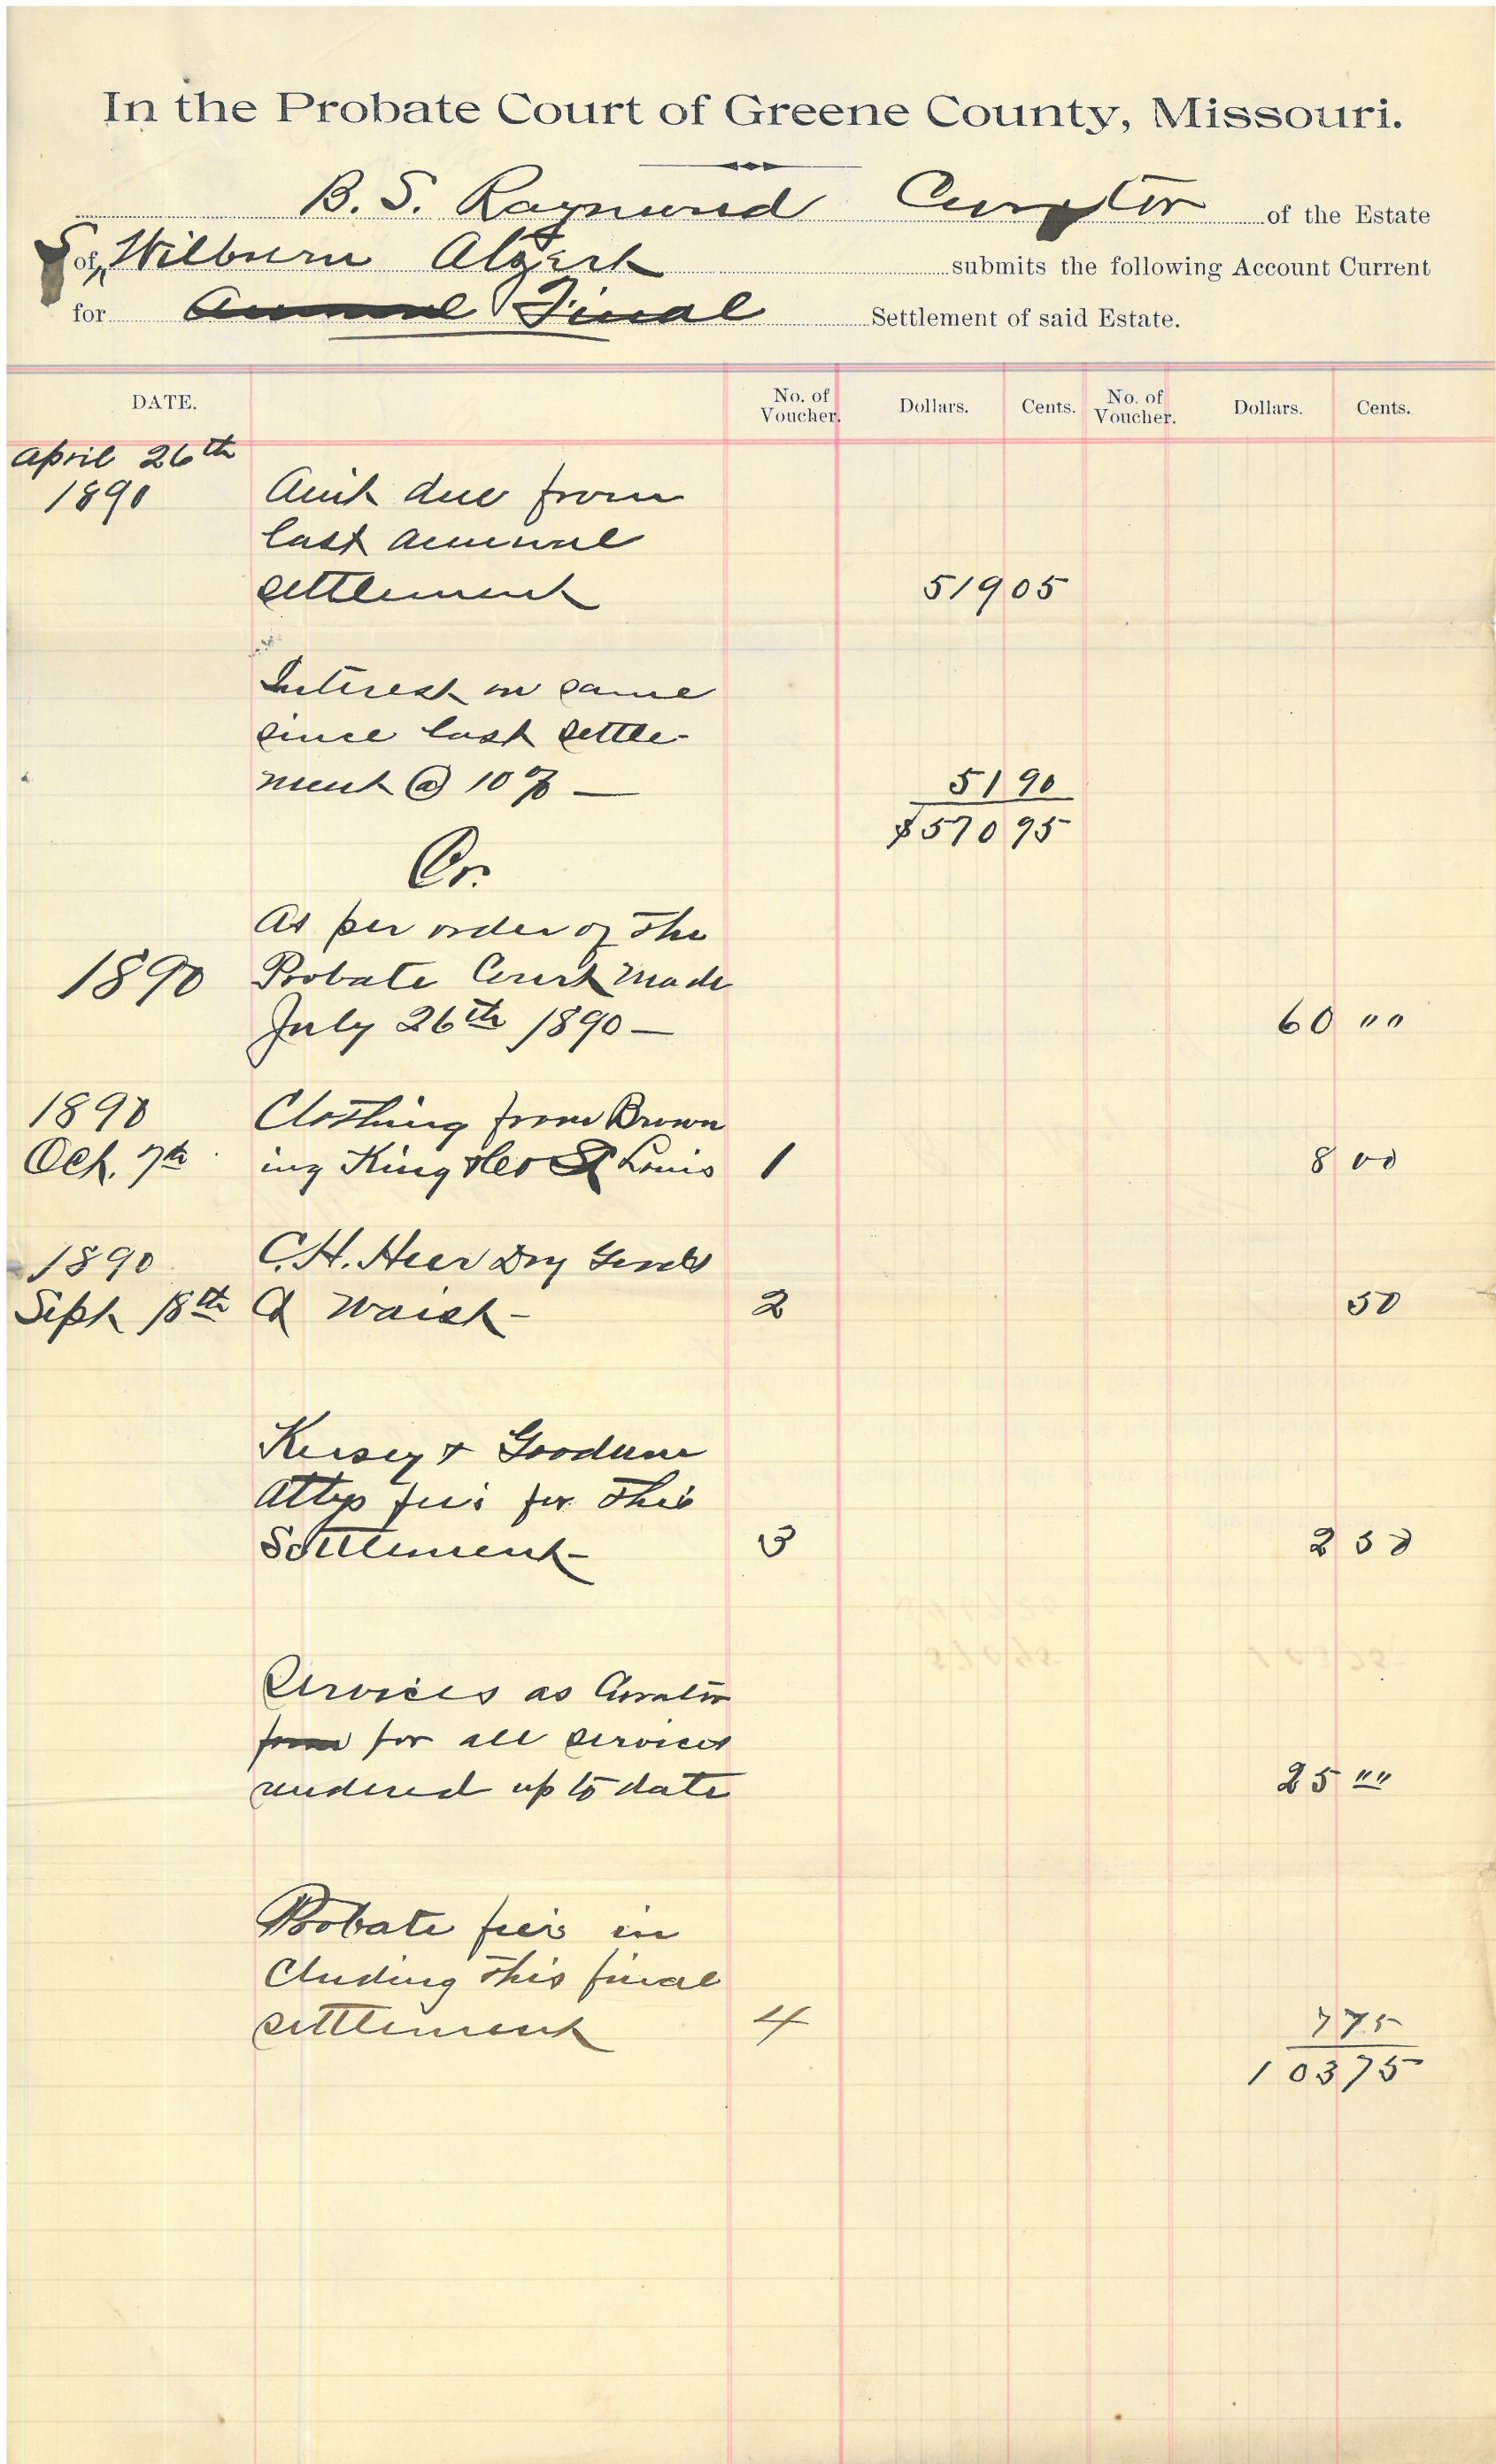 In the Probate Court of Greene County, Missouri.
B. S. Raymond Curator of the Estate
of Wilburn submits the following Account Current
for Annual Final Settlement of said Estate.
DATE. No. of Voucher. Dollars. Cents. No. of Voucher. Dollars. Cents.
April 26th
1890 Amt due from
last annual
settlement 519 05
Interest on same
since last settle-
ment @ 10% — 51 90
$570 95
Cr.
As per order of the
1890 Probate Court made
July 26th 1890 — 60 "
1890 Clothing from Brown
Oct. 7th ing King & Co St Louis 1 8 00
1890 C.H. Heer Dry Goods
Sept 18th A Waist - 2 50
Kersey & Goodnow
Attys fees for this
Settlement - 3 2 50
Services as Curator
from for all services
rendered up to date 25 "
Probate fees in
cluding this final
settlement 4 7 75
103 75